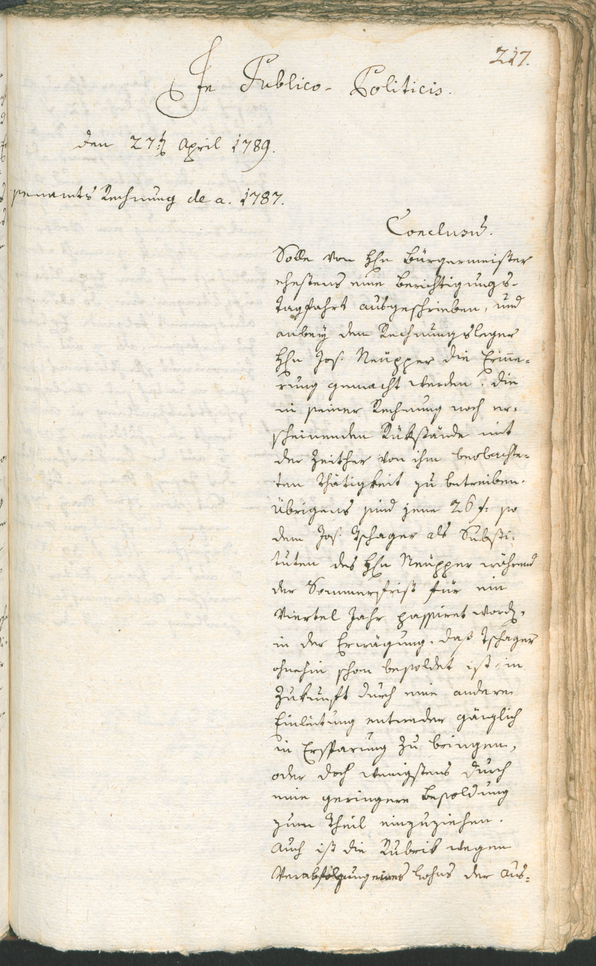 217.
In Publico-Politicis.
den 27ten April 1789.
Rechnung de a. 1787.
Conclusum.
Solle von Hhn Bürgermeister
ehestens eine Berichtigungs-
tagfahrt ausgeschrieben, und
anbey dem Rechnungsleger
Hhn Jos. Neupper die Erinne-
rung gemacht werden, die
in seiner Rechnung noch er-
scheinenden Rükstände mit
der zeither von ihm beobachte-
ten Thätigkeit zu betreiben.
Übrigens sind jene 26 f. so
dem Jos. Tschager als Substi-
tuten des Hhn Neupper während
der Sommerfrist für ein
Viertel Jahr passiret word,
in der Erwägung, daß Tschager
ohnehin schon besoldet ist, in
Zukunft durch eine andere
Einleitung entweder gänzlich
in Ersparung zu bringen,
oder doch wenigstens durch
eine geringere Besoldung
zum Theil einzuziehen.
Auch ist die Rubrik wegen
Verabfolgung eines Lohns der Aus-